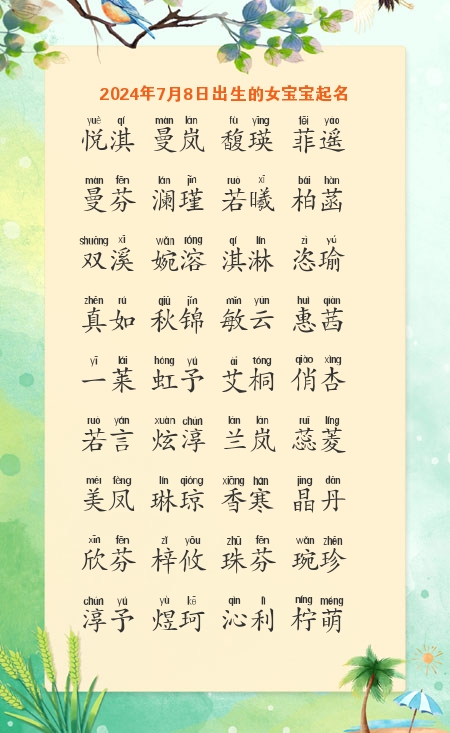 2024年7月8日出生的女宝宝起名
yuè qí màn lán fù yīng fēi yáo
悦淇 曼岚 馥瑛 菲遥
màn fēn lán jǐn ruò xī bǎi hàn
曼芬 澜瑾 若曦 柏菡
shuāng xī wǎn róng qí lín zì yú
双溪 婉溶 淇淋 恣瑜
zhēn rú qiū jǐn mǐn yún huì qiàn
真如 秋锦 敏云 惠茜
yī lái hóng yǔ ài tóng qiào xìng
一莱 虹予 艾桐 俏杏
ruò yán xuàn chún lán lán ruǐ líng
若言 炫淳 兰岚 蕊菱
měi fèng lín qióng xiāng hán jīng dān
美凤 琳琼 香寒 晶丹
xīn fēn zǐ yōu zhū fēn wǎn zhēn
欣芬 梓攸 珠芬 琬珍
chún yú yù kē qìn lì níng méng
淳予 煜珂 沁利 柠萌